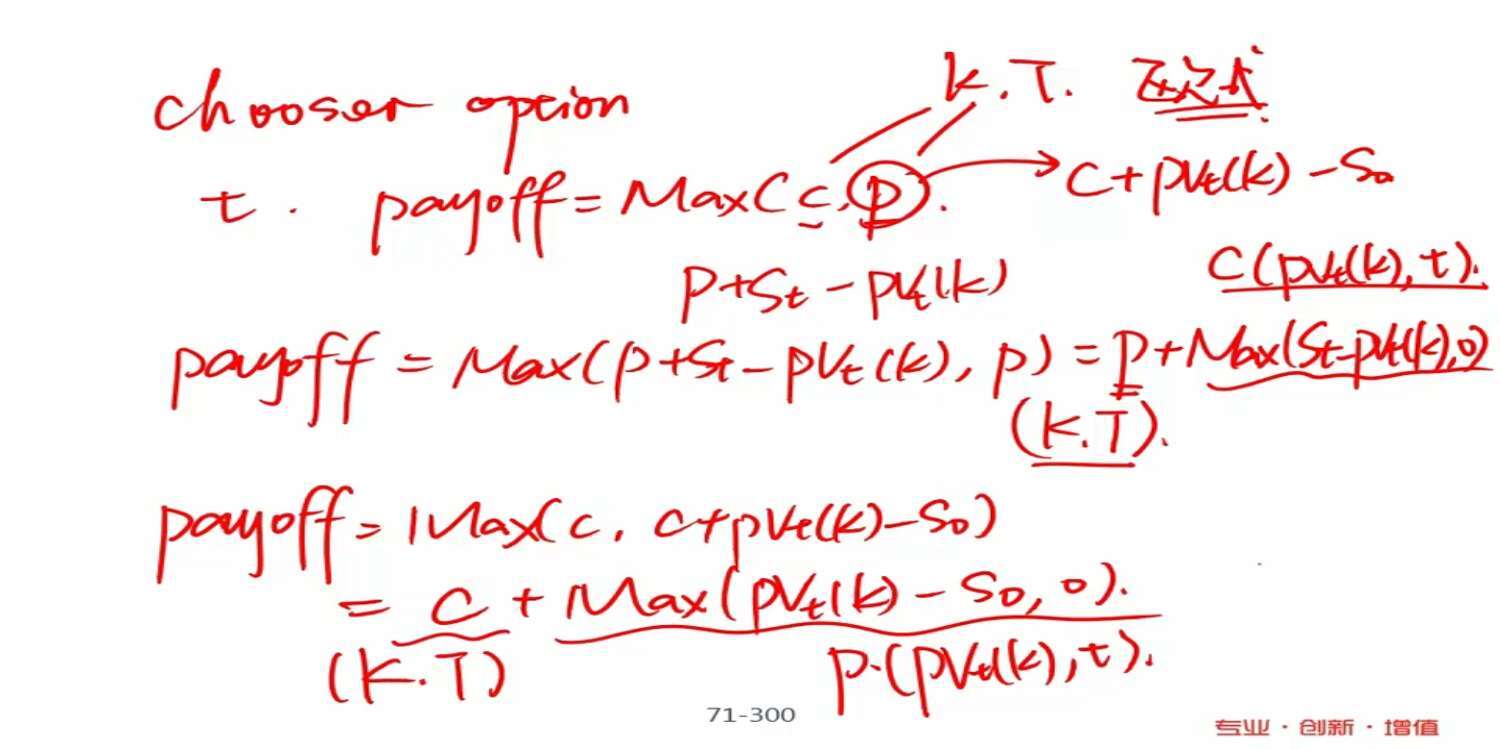 chooser option
K.T. 欧式
t. payoff = Max(c, p).
C + PVt(k) - S0
p + St - PVt(k)
C(PVt(k), t).
payoff = Max(p + St - PVt(k), p) = p + Max(St - PVt(k), 0)
(K.T).
payoff = Max(c, c + PVt(k) - S0)
= C + Max(PVt(k) - S0, 0).
(K.T)
P.(PVt(k), t).
71-300
专业·创新·增值